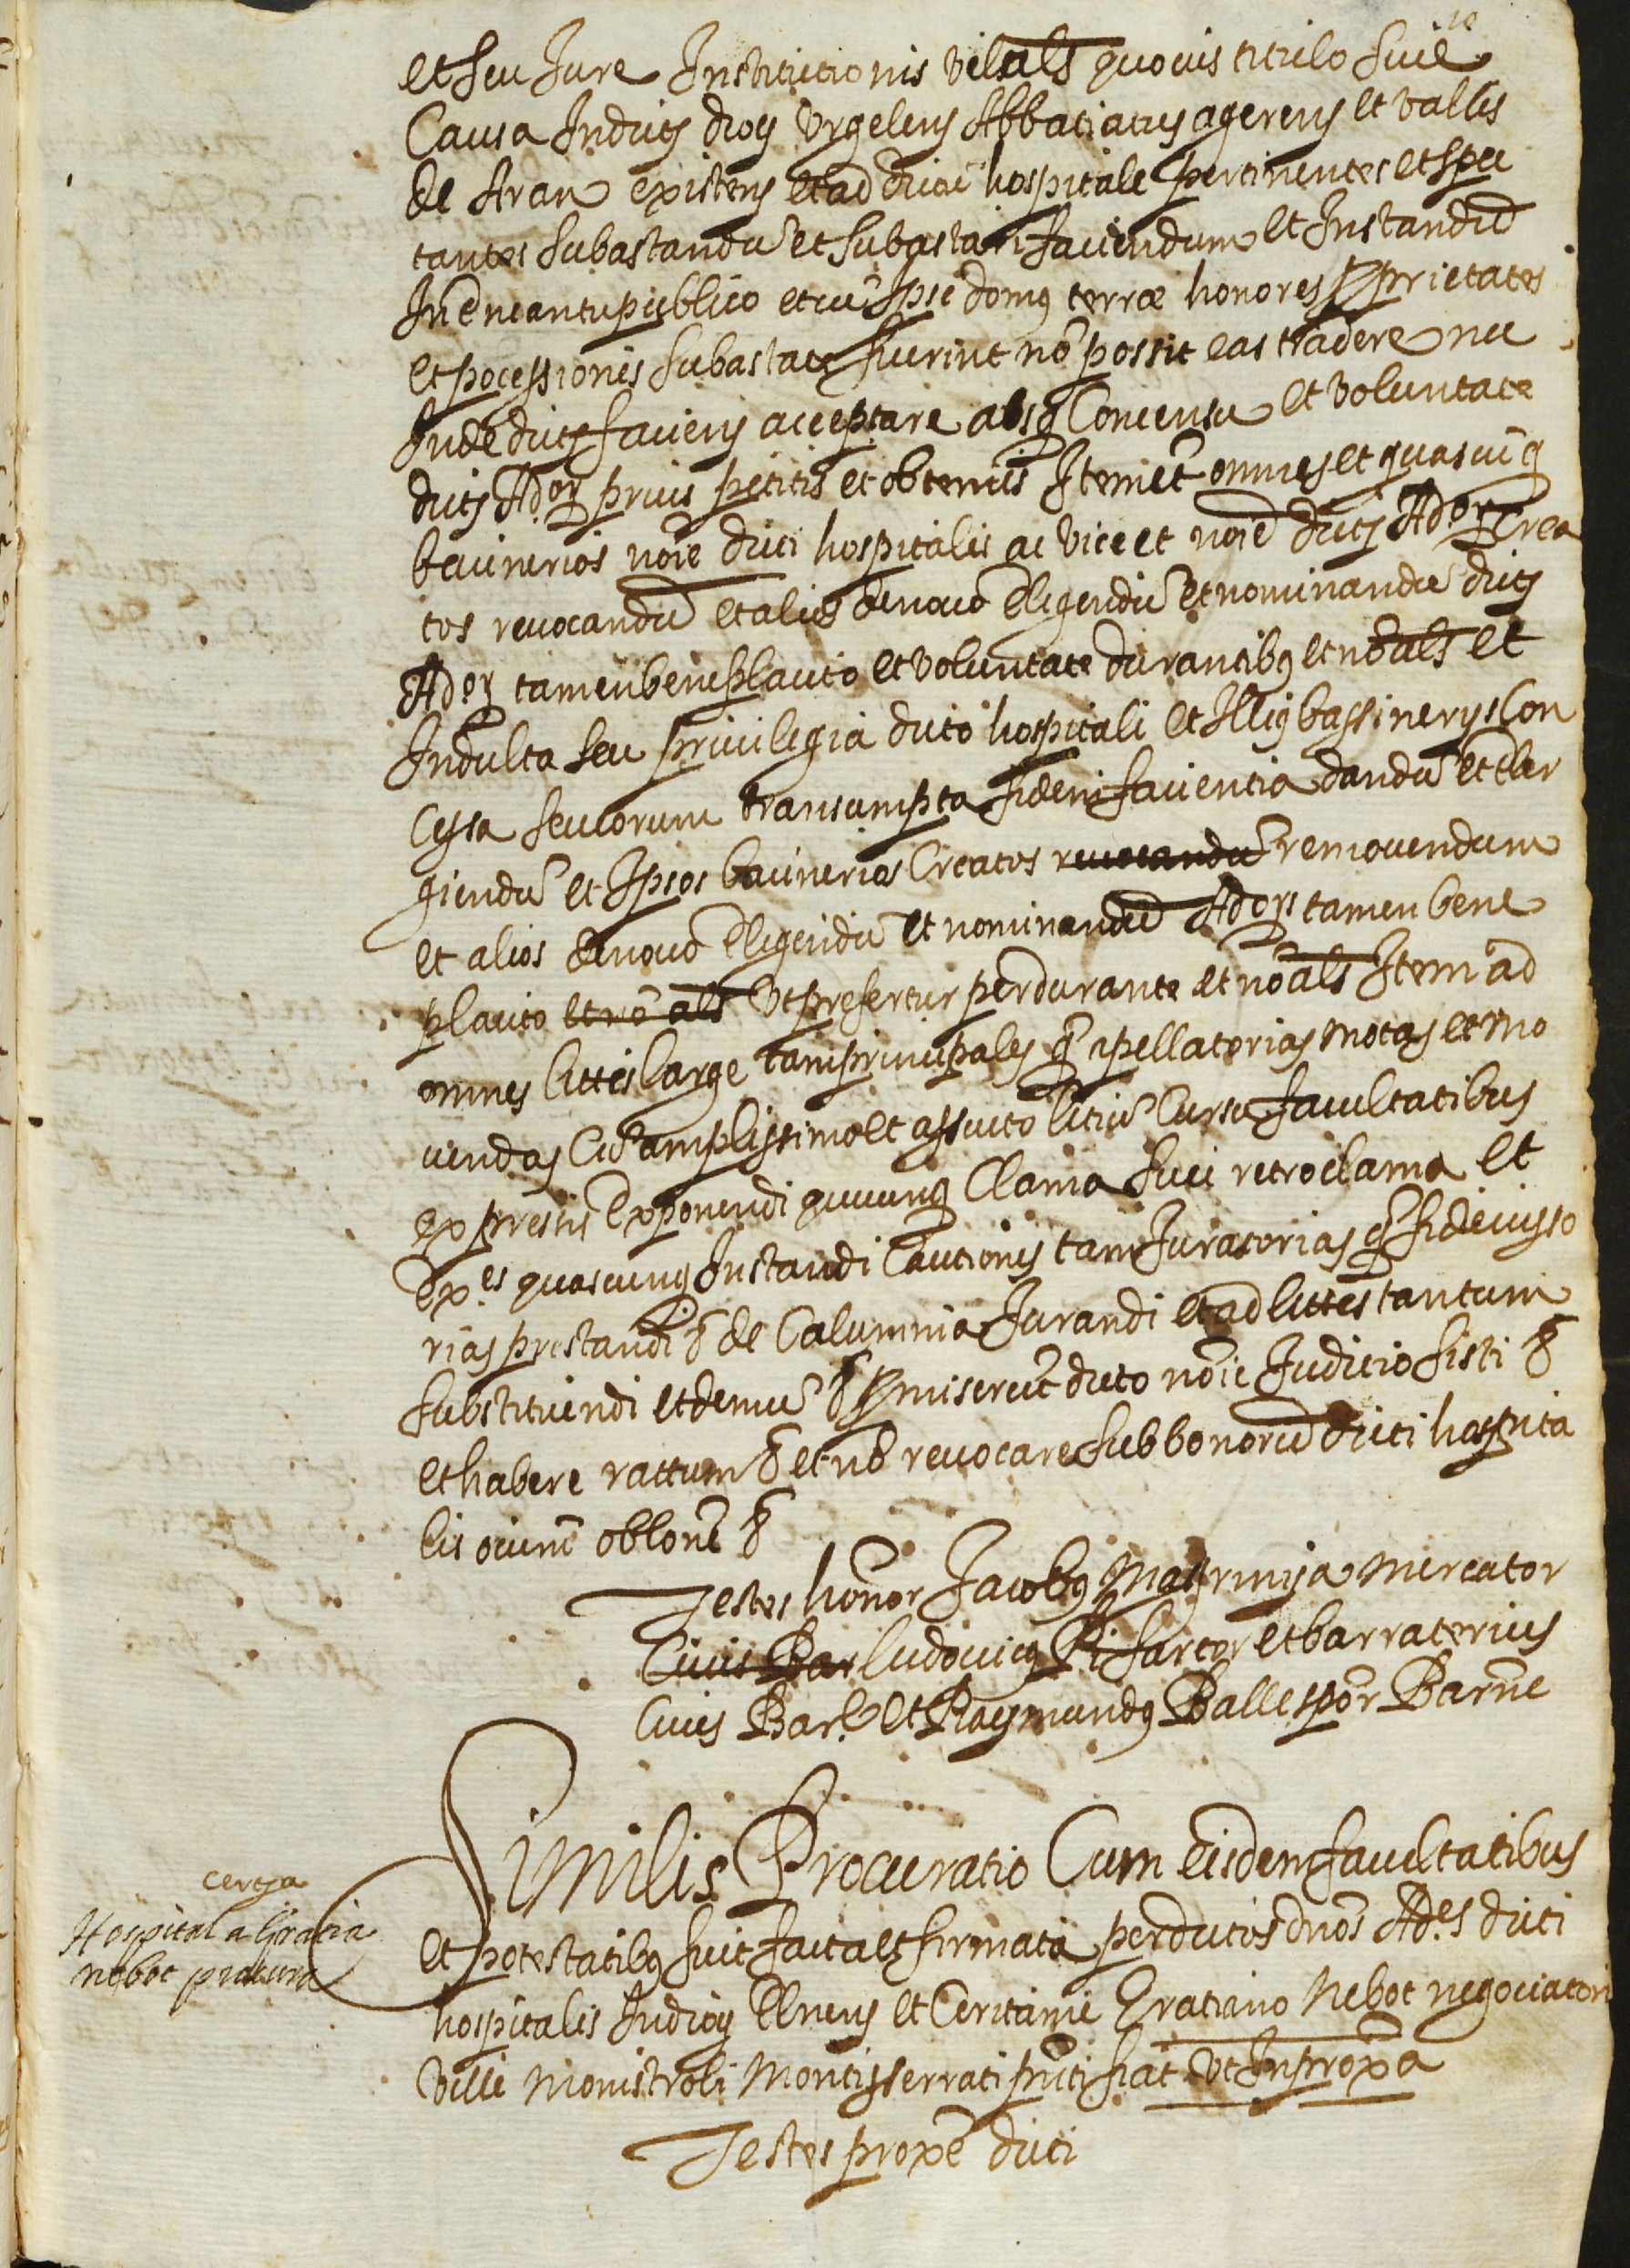 et seu Jure Institutionis vel als quovis titulo sive
Causa In dictis diog Urgelens Abbatiatus agerens et vallis
de Aran existens et ad dictū hospitale pertinentes et spec
tantes subastandū et subastari faciendum et Instandū
In encantu publico et cū Ipse domus terræ honores pprietates
et pocessiones subastate fuerint nō possit eas tradere nec
Inde dictis faciens acceptare absq Concensu et voluntate
dictis Ador prius petitis et obtentis Item et omnes et quascūq
bacinerios noīe dicti hospitalis ac vice et noīe dictis Ador crea
tos revocandū et alios denovo eligendū et nominandū dictis
Ador tamen beneplacito et voluntate durantibus et nō als et
Indulta seu privilegia dicto hospitali et Illis bassinerys Con
Cessa seu eorum transumpta fidem facientia dandū et ele
giendū et Ipsos bacinerios Creatos revocandū removendum
et alios denovo eligendū et nominandū Ador tamen bene
placito et nō als ut prefertur perdurante et nō als Item ad
omnes littes large tam principales q̄ apellatorias motas et mo
vendas Cū amplissimo et assueto litiū Cursu facultatibus
expressis Exponendi quecunq Clama sive retroclama et
Ex.es quascunq Instandi Cautiones tam Juratorias q̄ fideiusso
rias prestandi & de Calumnia Jurandi et ad littes tantum
substituendi et demū & pmiserūt dicto noīe Judicio sisti &
et habere rattum & et nō revocare sub bonorū dicti hospita
lis oium oblone &
Testes honor Jacobus Masrmija mercator
Civis Bar Ludovicus Pi sartor et barraterius
Cives Bar.e et Raymundus Balle spor Barne
Similis Procuratio Cum eisdem facultatibus
et potestatibus fuit facta et firmata per dictos dnos Ad.es dicti
hospitalis In diog Elnens et Ceritanie Gratiano Nebot negociatori
Ville Monistroli Montisserrati pnti fiat ut In proxa
Testes proxe dicti
cercja
Hospital a Gratia
nebot procura